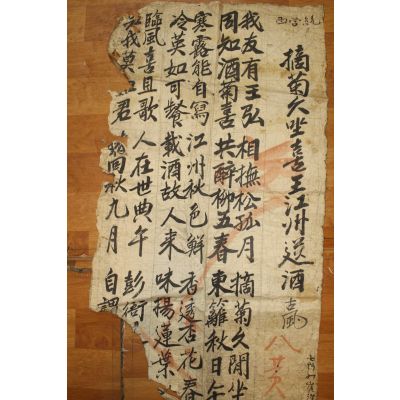 摘菊久坐喜王江州送酒
我友有王弘 相撫松孤月 摘菊久閒坐
因知酒菊喜 共醉柳五春 東籬秋日午
寒露能自寫 江州秋色鮮 香透杏花春
冷英如可餐 載酒故人来 味揚蓮葉
臨風喜且歌 人在世典午 彭衙
我莫 君 回秋九月 自謂